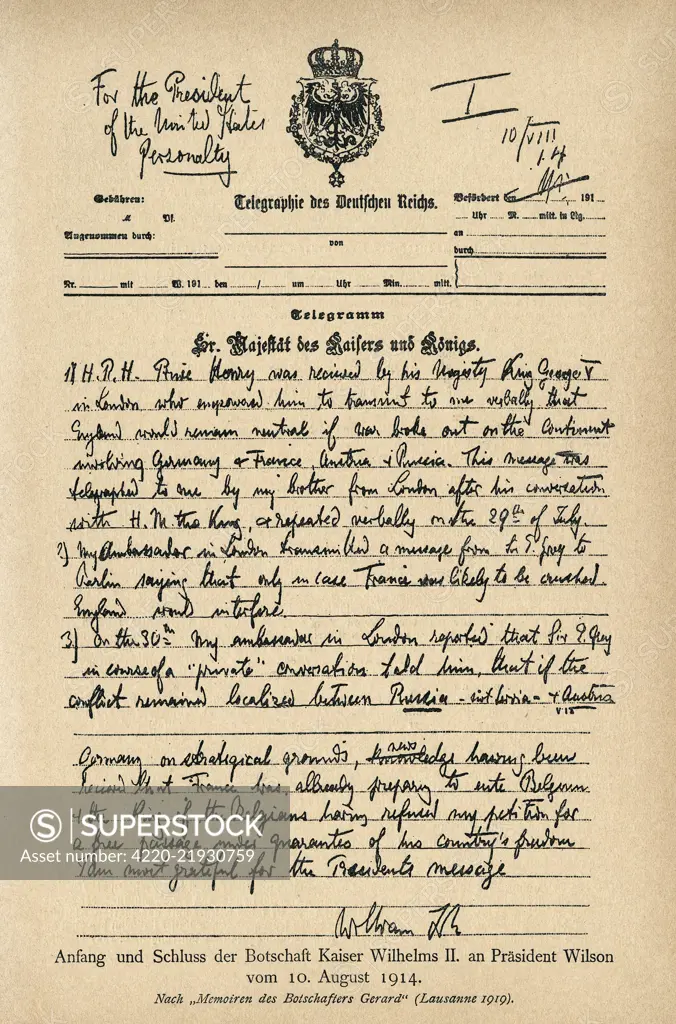 For the President
of the United States
Personally
I
10/VIII
14
Gebühren:
Telegraphie des Deutschen Reichs.
Befördert den 191
M. Pf.
Uhr M. mitt. in Ltg.
Angenommen durch:
von
an
durch
Nr. mit W. 191 den / um Uhr Min. mitt.
Telegramm
Sr. Majestät des Kaisers und Königs.
1) H.R.H. Prince Henry was recieved by his Majesty King George V
in London who empowered him to transmit to me verbally that
England would remain neutral if war broke out on the Continent
involving Germany & France, Austria & Russia. This message was
telegraphed to me by my brother from London after his conversation
with H.M. the King, & repeated verbally on the 29th of July.
2) My Ambassador in London transmitted a message from Sir E. Grey to
Berlin saying that only in case France was likely to be crushed
England would interfere.
3) On the 30th my ambassador in London reported that Sir E. Grey
in course of a "private" conversation told him, that if the
conflict remained localized between Russia - not Servia - & Austria
Germany on strategical grounds, news having been
recieved that France was already preparing to enter Belgium
& the King of the Belgians having refused my petition for
a free passage under guarantee of his country's freedom
I am most grateful for the Presidents message
William I.R.
Anfang und Schluss der Botschaft Kaiser Wilhelms II. an Präsident Wilson
vom 10. August 1914.
Nach „Memoiren des Botschafters Gerard" (Lausanne 1919).
SUPERSTOCK
Asset number: 4220-21930759